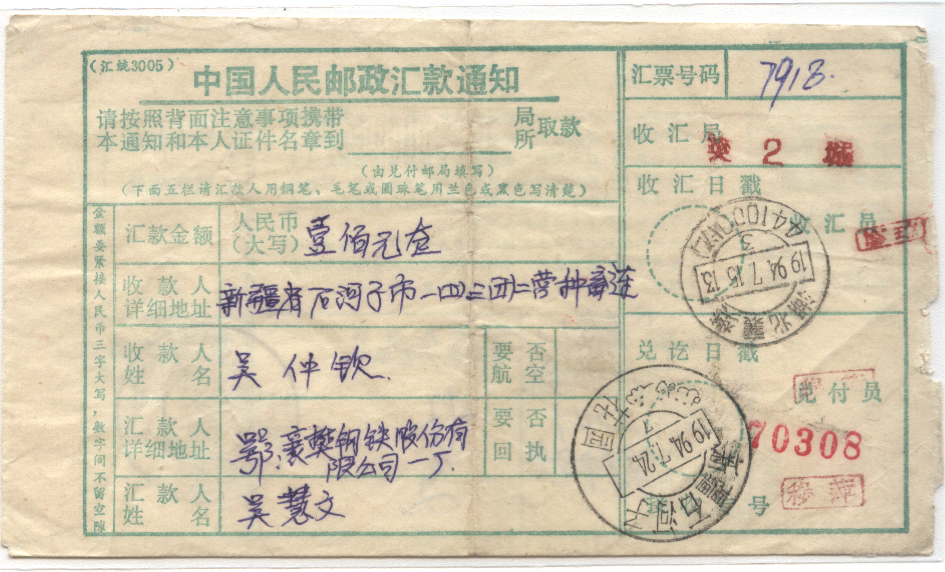 (汇统3005)
中国人民邮政汇款通知
请按照背面注意事项携带
本通知和本人证件名章到
局
所
取款
(由兑付邮局填写)
(下面五栏请汇款人用钢笔、毛笔或圆珠笔用兰色或黑色写清楚)
金额要紧接人民币三字大写,数字间不留空隙
汇款金额
人民币
(大写)
壹佰元
收款人
详细地址
新疆省石河子市一四三团
收款人
姓名
吴仲钦
要否
航空
汇款人
详细地址
鄂襄樊钢铁股份有
限公司一厂
要否
回执
汇款人
姓名
吴慧文
汇票号码
7918
收汇局
樊 2
收汇日戳
收汇员
441000
3
1994.7.15.13
湖北襄樊
兑讫日戳
兑付员
1994.7.24
石河子
花园
70308
号
穆萍